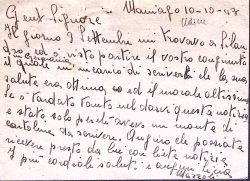 Maniago 10-10-43
Udine
Gent. Signore
il giorno 8 Settembre mi trovavo a Milano
ed ho visto partire il vostro congiunto
il quale mi incaricò di scriverle che la sua
salute era ottima, ed il morale altissimo
Se ò tardato tanto nel darvi questa notizia
è stato solo perché avevo un monte di
cartoline da scrivere. Auguro che possiate
ricevere presto da lui con lieta notizia
i più cordiali saluti e